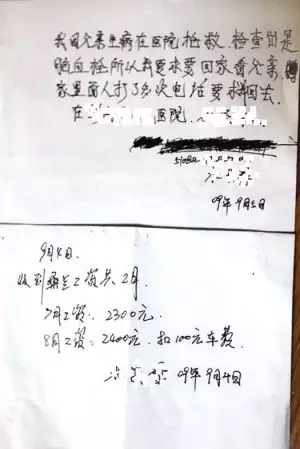 我因父亲生病在医院抢救,检查出是
脑血栓所以我要求要回家看父亲,
家里面人打了多次电话要求我回去.
在 医院.
51082
09年9月5日
9月4日.
收到 工资共2月.
7月工资:2300元.
8月工资:2400元.扣100元车费.
09年9月4日